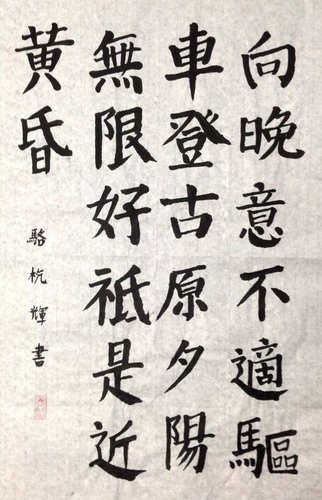 向晚意不適驅
車登古原夕陽
無限好祗是近
黃昏
駱杭輝書